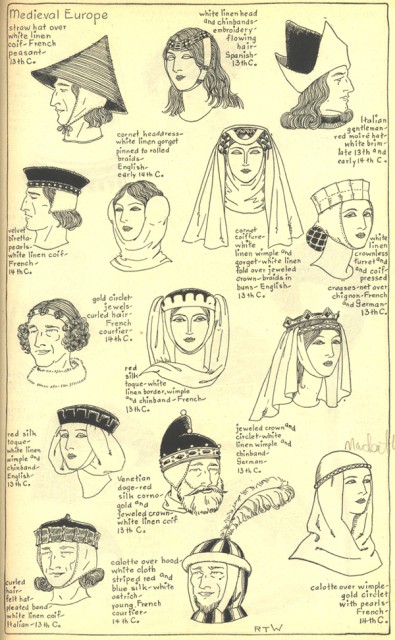 Medieval Europe
straw hat over
white linen
coif-French
peasant-
13th C.
white linen head
and chinbands-
embroidery-
flowing
hair-
Spanish-
13th C.
Italian
gentleman-
red moiré hat-
white brim-
late 13th and
early 14th C.
cornet headdress-
white linen gorget
pinned to rolled
braids-
English-
early 14th C.
velvet
biretta-
pearls-
white linen coif-
French-
14th C.
cornet
coiffure-
white
linen wimple and
gorget-white linen
fold over jeweled
crown-braids in
buns-English-
13th C.
white
linen
crownless
turret and
and coif-
pressed
creases-net over
chignon-French
and German-
13th C.
gold circlet-
jewels-
curled hair-
French
courtier-
14th C.
red
silk
toque-white
linen border, wimple
and chinband-French-
13th C.
jeweled crown and
circlet-white
linen wimple and
chinband-
German-
13th C.
red silk
toque-
white linen
wimple and
chinband-
English-
13th C.
Venetian
doge-red
silk corno-
gold and
jeweled crown-
white linen coif
13th C.
curled
hair-
felt hat-
pleated band-
white linen coif-
Italian-13th C.
calotte over hood-
white cloth
striped red and
blue silk-white
ostrich-
young French
courtier-
14th C.
calotte over wimple-
gold circlet
with pearls-
French-
14th C.
RTW